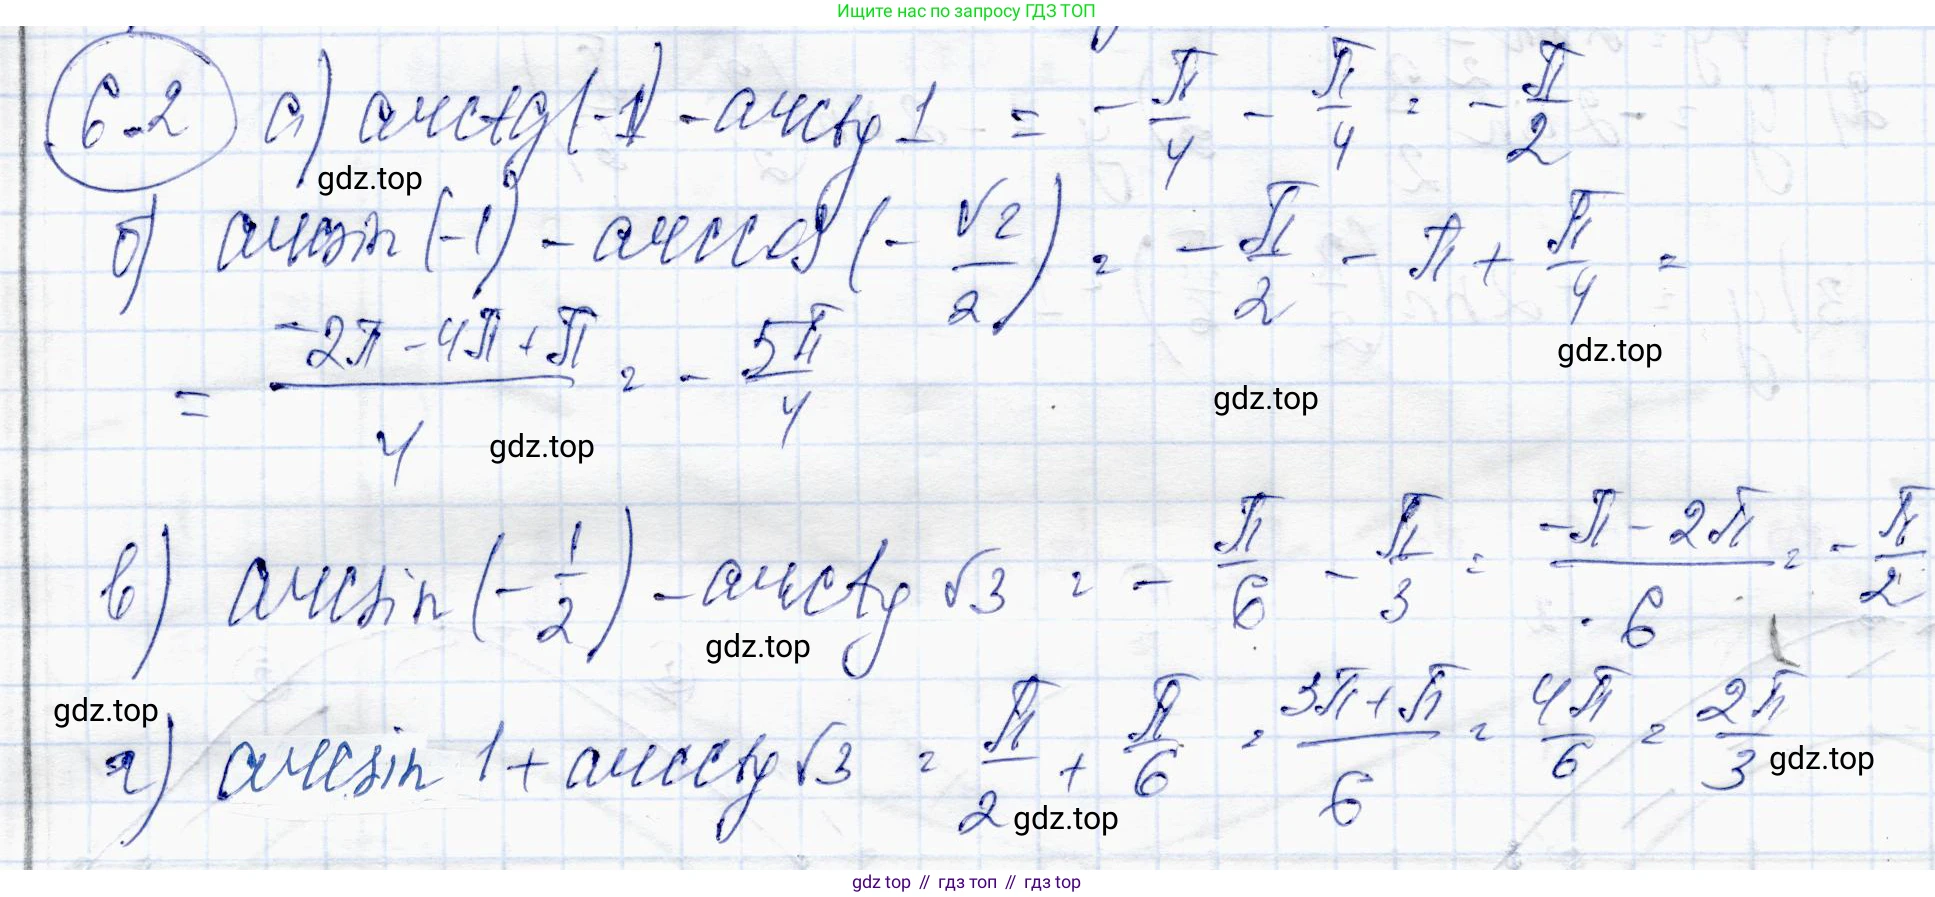 Ищите нас по запросу ГДЗ ТОП
6.2 а) arctg(-1) - arctg 1 = - π/4 - π/4 = - π/2
gdz.top
б) arcsin(-1) - arccos(- √2/2) = - π/2 - π + π/4 =
gdz.top
= (-2π - 4π + π)/4 = - 5π/4
gdz.top
gdz.top
в) arcsin(- 1/2) - arctg √3 = - π/6 - π/3 = (-π - 2π)/6 = - π/2
gdz.top
gdz.top
г) arcsin 1 + arcctg √3 = π/2 + π/6 = (3π + π)/6 = 4π/6 = 2π/3
gdz.top
gdz.top
gdz top // гдз топ // гдз top